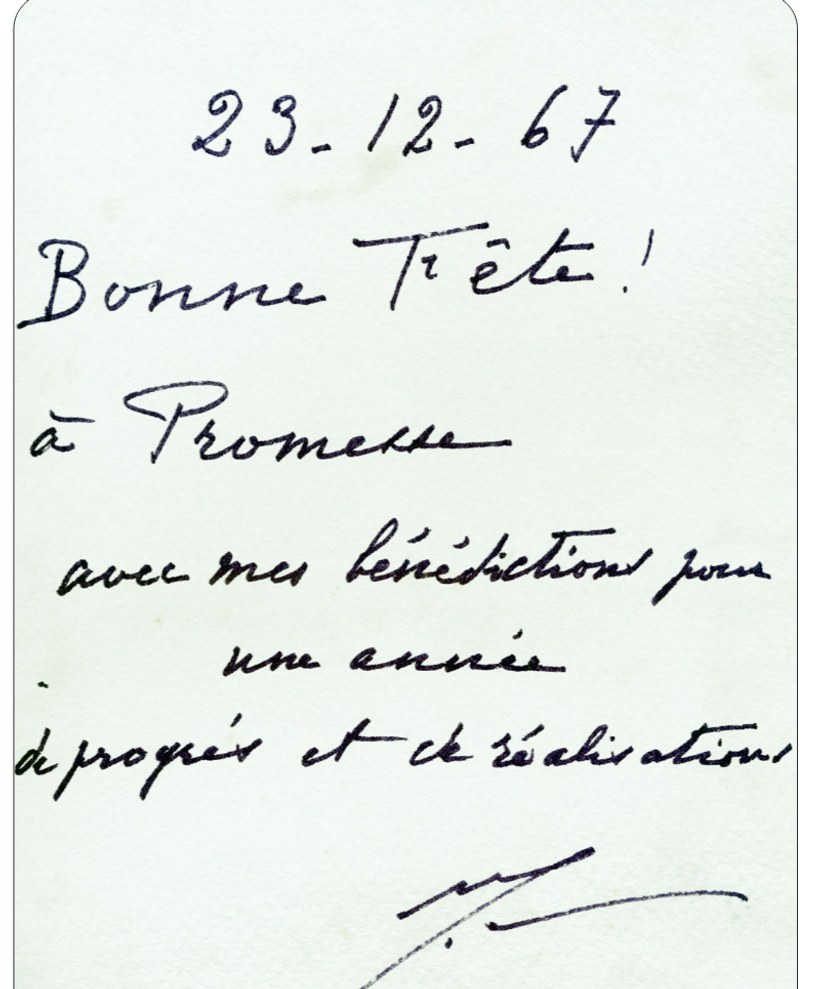 23-12-67
Bonne Fête!
à Promesse
avec mes bénédictions pour
une année
de progrés et de réalisations